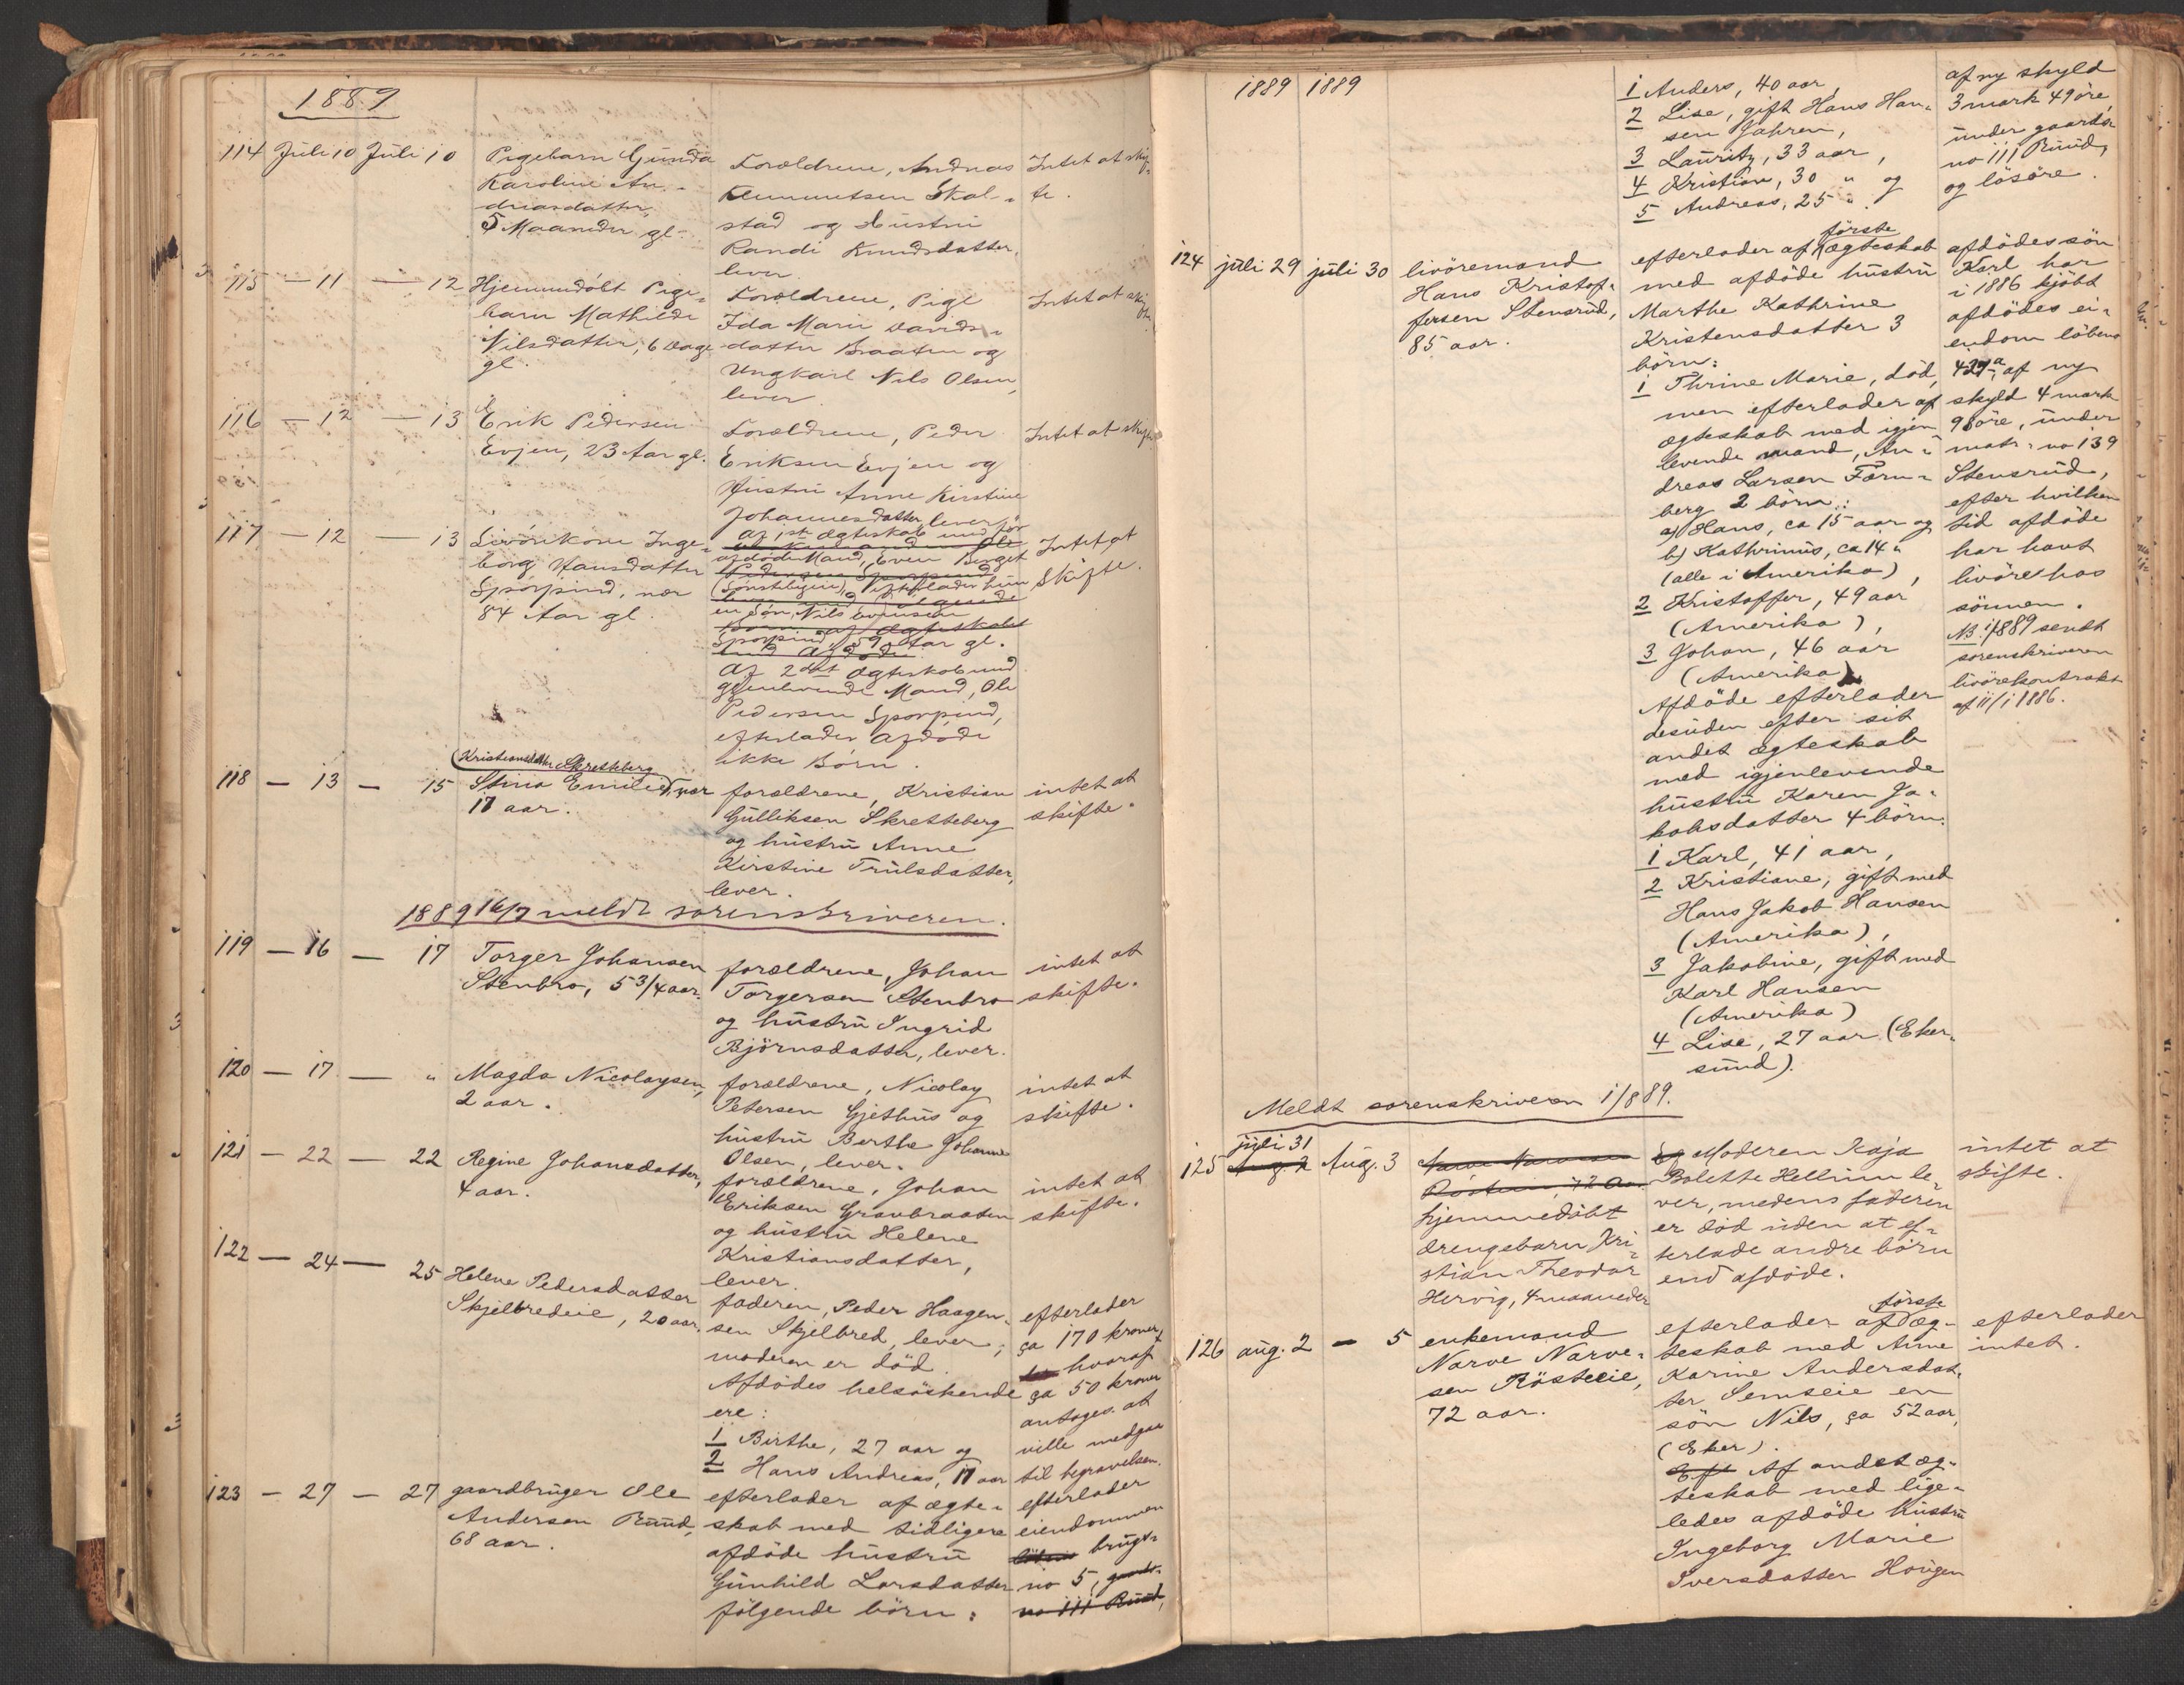 1889
114 Juli 10 Juli 10
Pigebarn Gunda
Karoline An-
dreasdatter,
5 Maaneder gl.
Forældrene, Andreas
Klemmetsen Skal-
stad og Hustru
Randi Knudsdatter,
lever.
Intet at skif-
te.
115 — 11 — 12
Hjemmedöbt Pige-
barn Mathilde
Nilsdatter, 6 Dage
gl.
Forældrene, Pige
Ida Marie Davids-
datter Braaten og
Ungkarl Nils Olsen,
lever.
Intet at skifte.
116 — 12 — 13
Erik Pedersen
Evjen, 23 Aar gl.
Forældrene, Peder
Eriksen Evjen og
Hustru Anne Kirstine
Johannesdatter, lever.
Intet at skifte
117 — 12 — 13
Livörekone Inge-
borg Hansdatter
Sporpind, nær
84 Aar gl.
Af 1ste Ægteskab med för
afdöde Mand, Even Berget
efterlader hun
en Sön, Nils Evensen
Sporpind, 59 Aar gl.
Af 2det Ægteskab med
gjenlevende Mand, Ole
Pedersen Sporpind,
efterlader Afdöde
ikke Börn.
Intet at
Skifte.
118 — 13 — 15
(Kristiansdatter Skretteberg
Stina Emilie, nær
17 aar.
forældrene, Kristian
Gulliksen Skretteberg
og hustru Anne
Kirstine Trulsdatter,
lever.
intet at
skifte.
1889 16/7 meldt sorenskriveren.
119 — 16 — 17
Torger Johansen
Stenbro, 5 3/4 aar.
forældrene, Johan
Torgersen Stenbro
og hustru Ingrid
Björnsdatter, lever.
intet at
skifte.
120 — 17 — "
Magda Nicolaysen,
2 aar.
forældrene, Nicolay
Petersen Gjethus og
hustru Berthe Johanne
Olsen, lever.
intet at
skifte.
121 — 22 — 22
Regine Johansdatter,
4 aar.
forældrene, Johan
Eriksen Gravbraaten
og hustru Helene
Kristiansdatter,
lever.
intet at
skifte.
122 — 24 — 25
Helene Pedersdatter
Skjelbredeie, 20 aar.
faderen, Peder Haagen-
sen Skjelbred, lever;
moderen er död.
Afdödes helsöskende
ere:
1 Birthe, 27 aar og
2 Hans Andreas, 17 aar
efterlader
ca 170 kroner,
hvoraf
ca 50 kroner
antages at
ville medgaa
til begravelsen.
123 — 27 — 27
gaardbruger Ole
Andersen Ruud,
68 aar.
efterlader af ægte-
skab med tidligere
afdöde hustru
Gunhild Larsdatter
fölgende börn:
efterlader
eiendommen
brugs-
no 5, gaards-
no 111 Ruud,
1889 1889
1 Anders, 40 aar,
2 Lise, gift Hans Han-
sen Jahren,
3 Lauritz, 33 aar,
4 Kristian, 30 " og
5 Andreas, 25 "
af ny skyld
3 mark 49 öre,
under gaards-
no 111 Ruud,
og lösöre.
124 juli 29 juli 30
livöremand
Hans Kristof-
fersen Stensrud,
85 aar.
efterlader af förste ægteskab
med afdöde hustru
Marthe Kathrine
Kristensdatter 3
börn:
1 Thrine Marie, död,
men efterlader af
ægteskab med igjen-
levende mand, An-
dreas Larsen Fœrn-
berg 2 börn:
a) Hans, ca 15 aar og
b) Kathrinus, ca 14 "
(alle i Amerika),
2 Kristoffer, 49 aar
(Amerika),
3 Johan, 46 aar
(Amerika)
Afdöde efterlader
desuden efter sit
andet ægteskab
med igjenlevende
hustru Karen Ja-
kobsdatter 4 börn:
1 Karl, 41 aar,
2 Kristiane, gift med
Hans Jakob Hansen
(Amerika),
3 Jakobine, gift med
Karl Hansen
(Amerika)
4 Lise, 27 aar (Eker-
sund).
afdödes sön
Karl har
i 1886 kjöbt
afdödes ei-
endom löbeno
427a, af ny
skyld 4 mark
98 öre, under
matr. no 139
Stensrud,
efter hvilken
tid afdöde
har havt
livöre hos
sönnen.
NB 1/889 sendt
sorenskriveren
livörekontrakt
af 11/1 1886.
Meldt sorenskriveren 1/889.
juli 31
125 Aug. 2 Aug. 3
hjemmedöbt
drengebarn Kri-
stian Theodor
Hervig, 4 maaneder
Moderen Kaja
Bolette Hellum le-
ver, medens faderen
er död uden at ef-
terlade andre börn
end afdöde.
intet at
skifte.
126 aug. 2 — 5
enkemand
Narve Narve-
sen Rösteeie,
72 aar.
efterlader af förste æg-
teskab med Anne
Karine Andersdat-
ter Semseie en
sön Nils, ca 52 aar,
(Eker).
Af andet æg-
teskab med lige-
ledes afdöde hustru
Ingeborg Marie
Iversdatter Hougen
efterlader
intet.